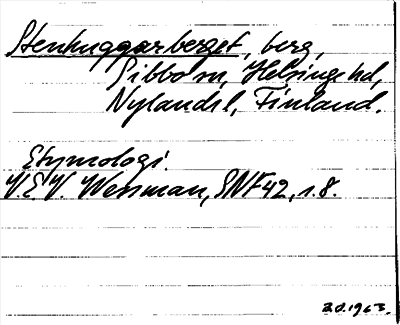 Stenhuggarberget, berg,
Sibbo sn, Helsinge hd,
Nylands l, Finland.
Etymologi.
V.E.V. Wessman, SNF 42, s. 8.
1963.